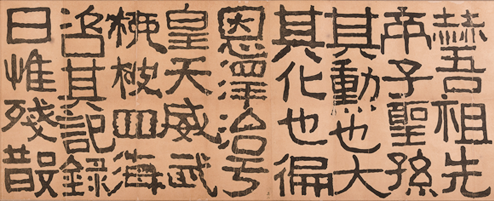 赫吾祖先
帝子聖孫
其動也大
其化也偏
恩澤洽亏
皇天威武
被四海
其記錄
日惟殘